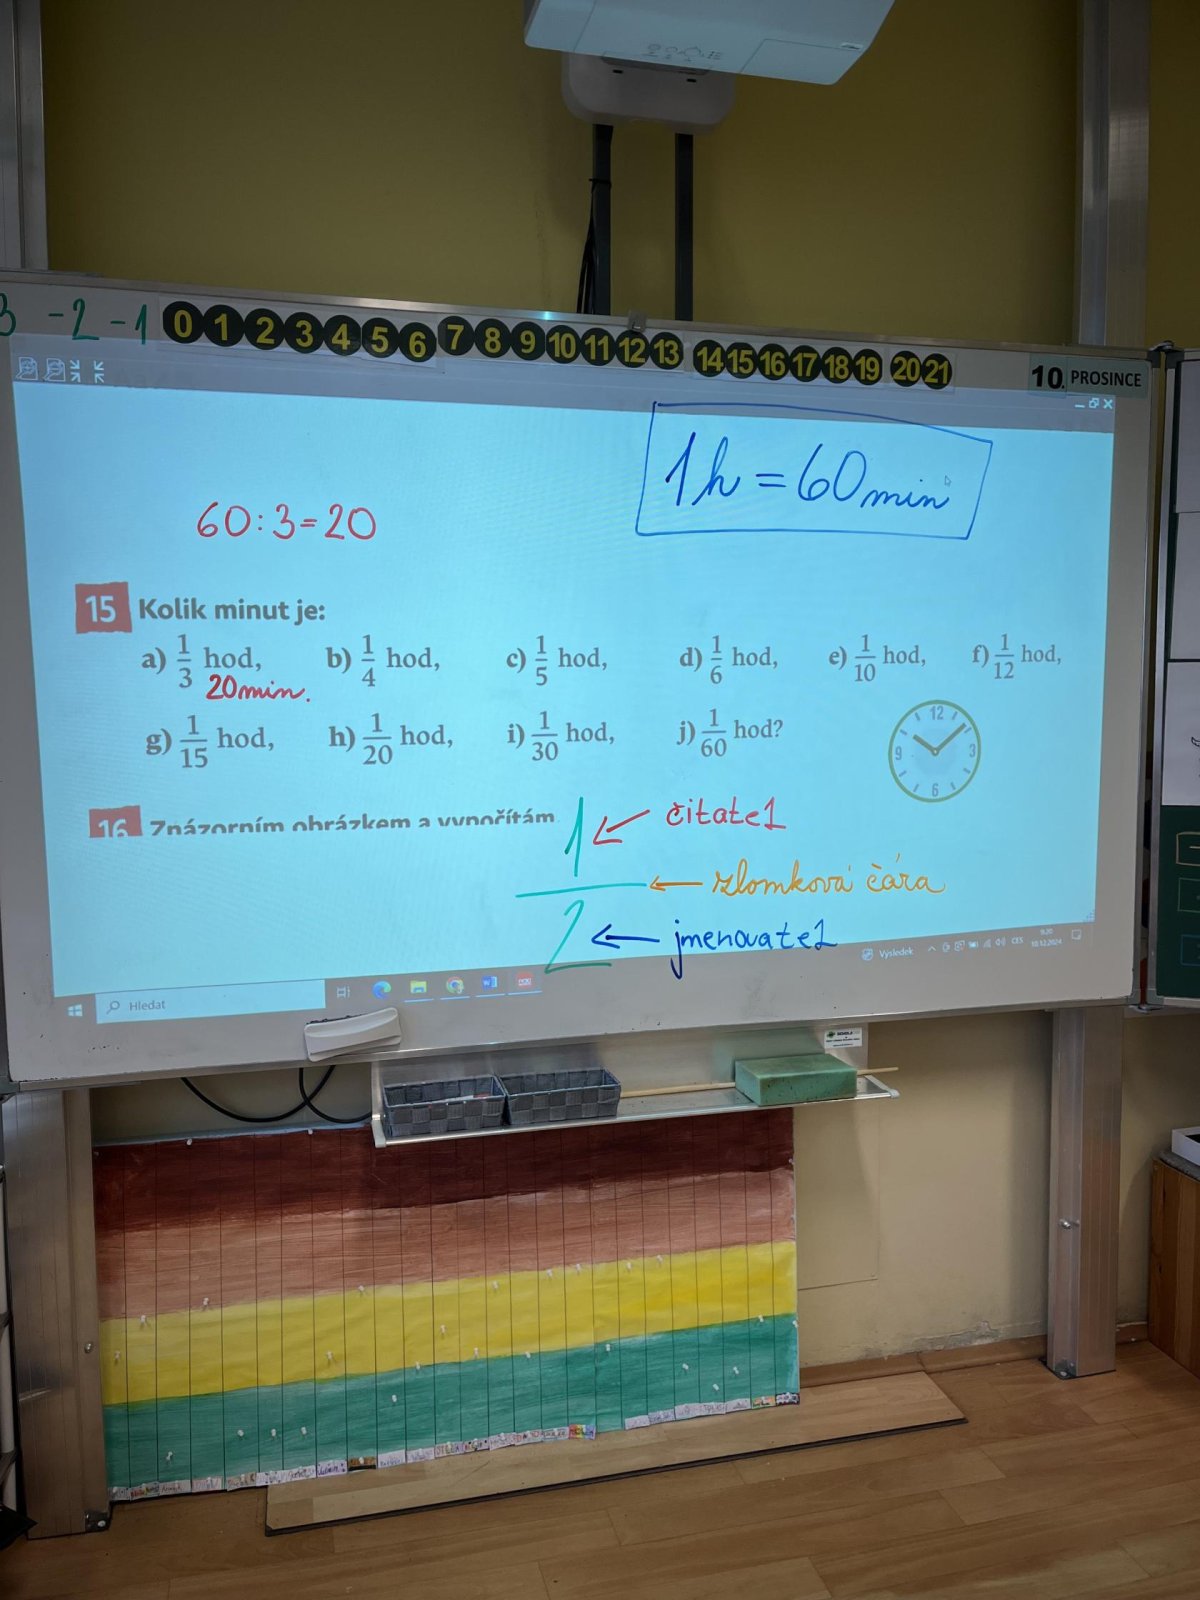 3 -2 -1 0 1 2 3 4 5 6 7 8 9 10 11 12 13 14 15 16 17 18 19 20 21
10. PROSINCE
1h = 60min
60:3=20
15 Kolik minut je:
a) 1/3 hod, b) 1/4 hod, c) 1/5 hod, d) 1/6 hod, e) 1/10 hod, f) 1/12 hod,
20min.
g) 1/15 hod, h) 1/20 hod, i) 1/30 hod, j) 1/60 hod?
12
9 3
6
16 Znázorním obrázkem a vypočítám
1 čitatel
zlomková čára
2 jmenovatel
Hledat
Výsledek
CES
9:20
10.12.2024